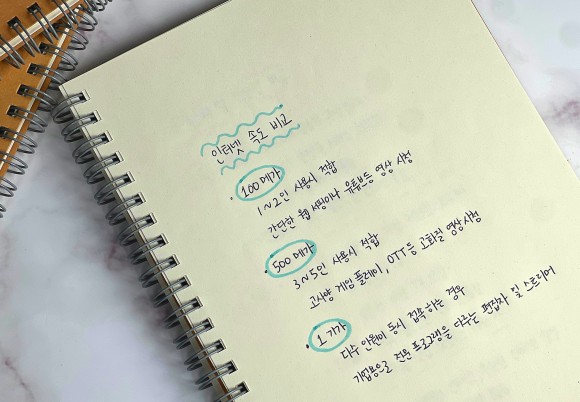 인터넷 속도 비교
· 100메가
1~2인 사용시 적합
간단한 웹 서핑이나 유튜브등 영상 시청
· 500메가
3~5인 사용시 적합
고사양 게임 플레이, OTT등 고화질 영상 시청
· 1기가
다수 인원이 동시 접속하는 경우
기업용으로 전문 프로그램을 다루는 편집자 및 스트리머